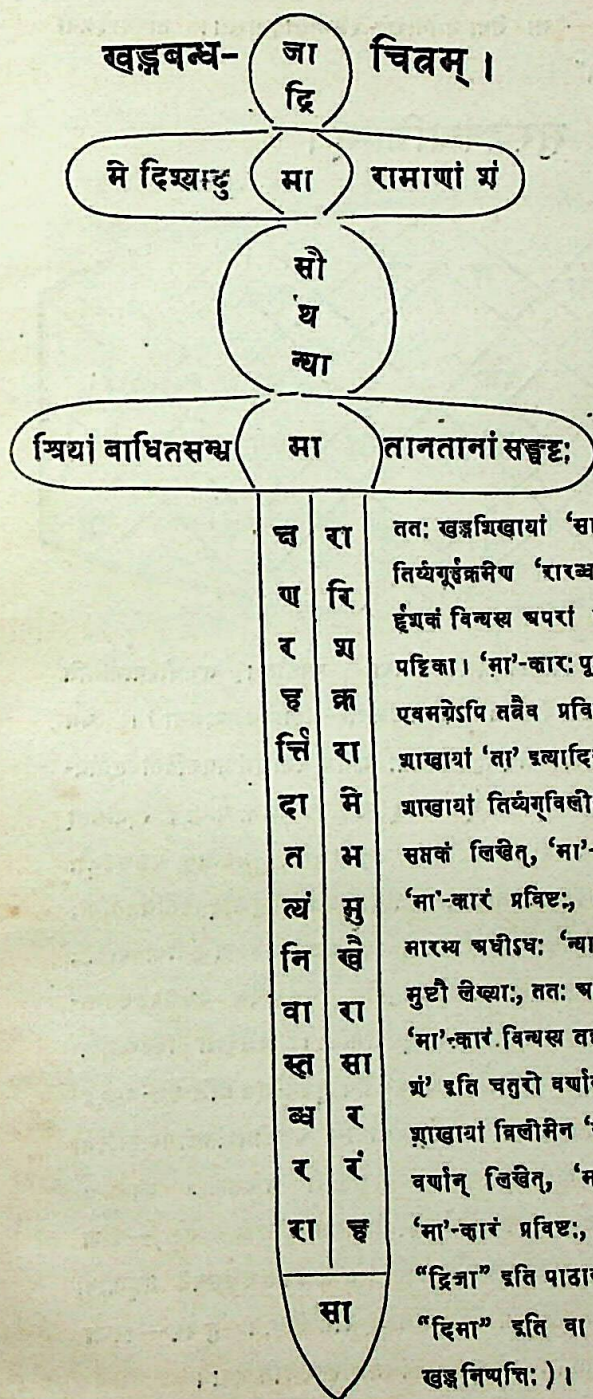 खड्गबन्ध- जा चित्रम् ।
द्रि
मे दिश्यादु मा रामाणां शं
सौ
थ
न्या
श्रियां बाधितसम्भ्र मा तानतानां सङ्घट्टः
क्ष रा
ण रि
र श
ह क्र
र्त्ति रा
दा मे
त भ
त्यं मु
नि खै
वा रा
स्त सा
ब्ध र
र रं
रा ह
सा
ततः खड्गशिखायां ‘सा
तिर्य्यगूर्द्ध्वक्रमेण ‘रारब्ध
र्द्दशकं विन्यस्य अपरां
पट्टिका । ‘मा’-कारः पू
एवमग्रेऽपि तत्रैव प्रवि
शाखायां ‘ता’ इत्यादि
शाखायां तिर्य्यग्विलो
सप्तकं लिखेत्, ‘मा’-
‘मा’-कारं प्रविष्टः,
मारभ्य अधोऽधः ‘न्या
मुष्टौ लेख्याः, ततः अ
‘मा’-कारं विन्यस्य त
शं’ इति चतुरो वर्णान
शाखायां विलोमेन ‘
वर्णान् लिखेत्, ‘म
‘मा’-कारं प्रविष्टः,
“द्रिजा” इति पाठा
“दिमा” इति वा
खड्गनिष्पत्तिः ) ।